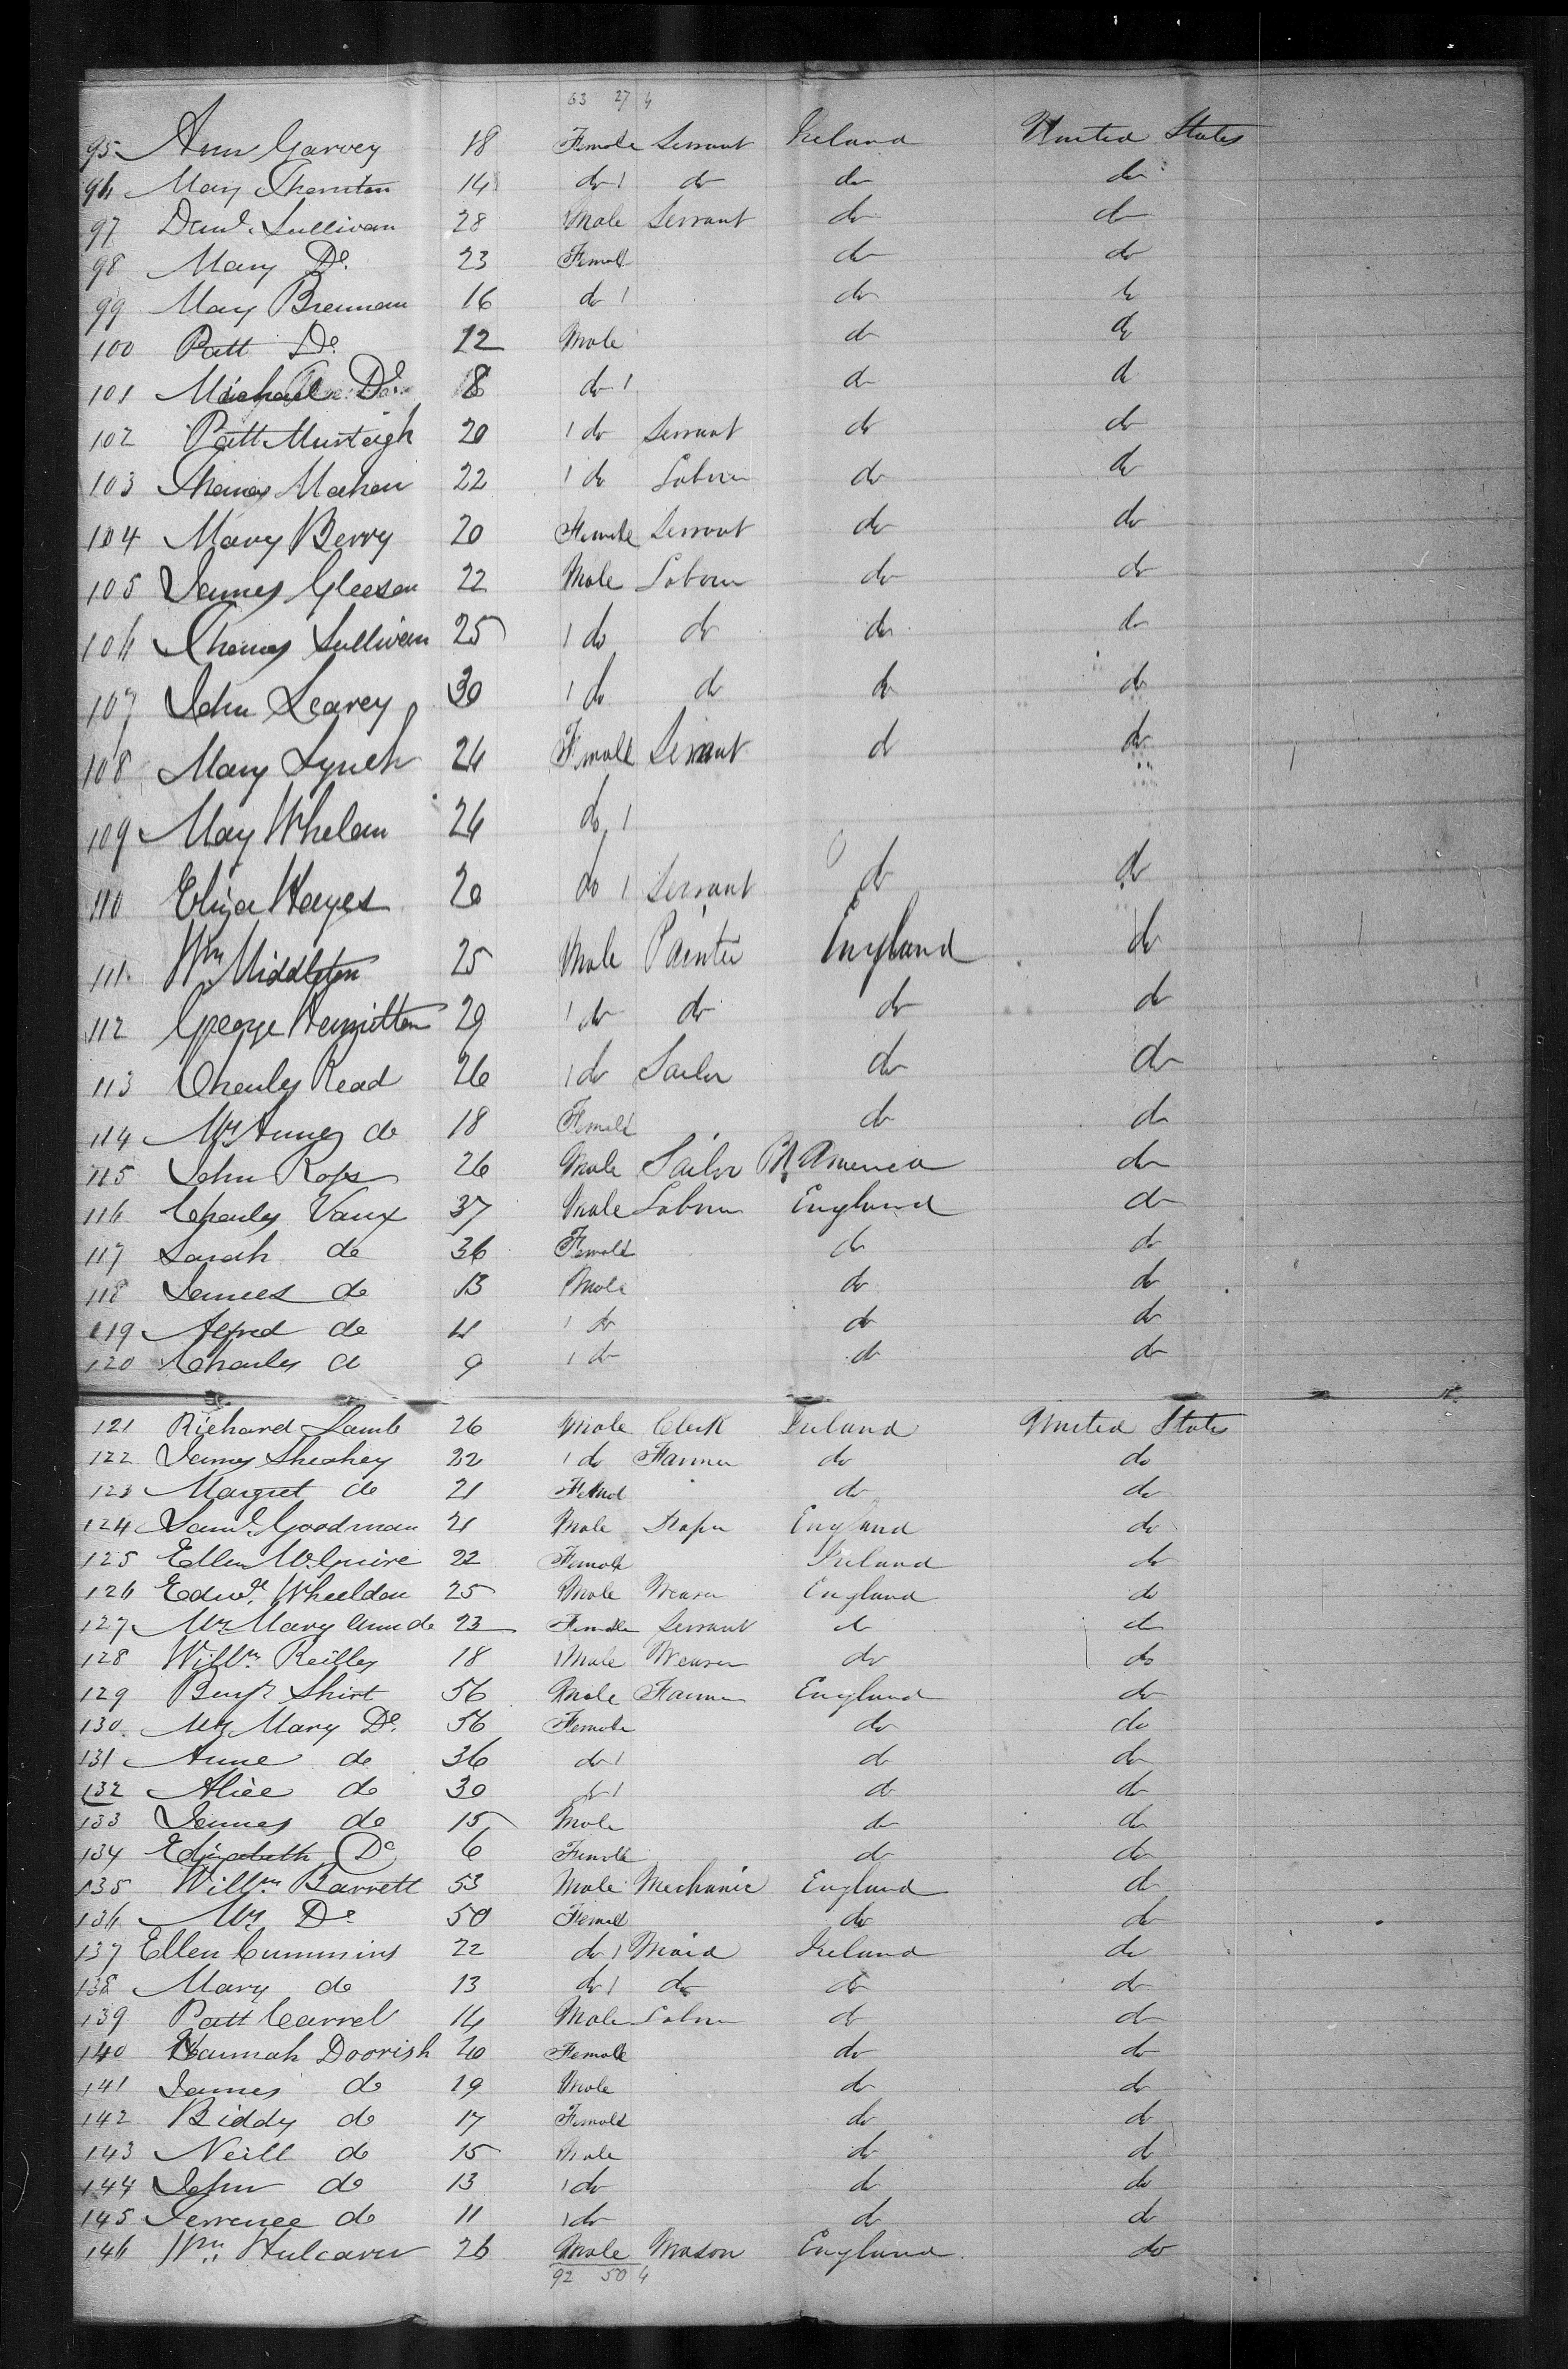 63 27 4
95 Ann Garvey 18 Female Servant Ireland United States
96 Mary Thornton 14 do 1 do do do
97 Danl. Sullivan 28 Male Servant do do
98 Mary Do. 23 Female do do
99 Mary Brennan 16 do 1 do do
100 Patt Do. 12 Male do do
101 Michael Do. 8 do 1 do do
102 Patt Murtaigh 20 1 do Servant do do
103 Thomas Mahon 22 1 do Labour do do
104 Mary Berry 20 Female Servant do do
105 James Gleeson 22 Male Labour do do
106 Thomas Sullivan 25 1 do do do do
107 John Learey 30 1 do do do do
108 Mary Lynch 24 Female Servant do do
109 May Whelan 24 do 1
110 Eliza Hayes 20 do 1 Servant do do
111 Wm Middleton 25 Male Painter England do
112 George 29 1 do do do do
113 Charles Read 26 1 do Sailor do do
114 Mrs Anne do 18 Female do do
115 John Ross 26 Male Sailor Br America do
116 Charles Vaux 37 Male Labour England do
117 Sarah do 36 Female do do
118 James do 13 Male do do
119 Alfred do 11 1 do do do
120 Charles do 9 1 do do do
121 Richard Lamb 26 Male Clerk Ireland United States
122 James Sheahey 22 1 do Farmer do do
123 Margret do 21 Female do do
124 Saml. Goodman 21 Male England do
125 Ellen McGuire 22 Female Ireland do
126 Edwd. Wheeldon 25 Male Weaver England do
127 Mrs Mary Ann do 23 Female Servant do do
128 Willm. Reilley 18 1 Male Weaver do do
129 Benjn Shirt 56 Male Farmer England do
130 Mrs Mary Do. 56 Female do do
131 Anne do 36 do 1 do do
132 Alice do 30 do 1 do do
133 James do 15 Male do do
134 Elizabeth Do 6 Female do do
135 Willm. Barrett 53 Male Mechanic England do
136 Mrs Do 50 Female do do
137 Ellen Cummins 22 do 1 Maid Ireland do
138 Mary do 13 do 1 do do do
139 Patt Carrel 14 Male Labour do do
140 Hannah Doorish 20 Female do do
141 James do 19 Male do do
142 Biddy do 17 Female do do
143 Neill do 15 Male do do
144 John do 13 1 do do do
145 Terrence do 11 1 do do do
146 Wm. 26 Male Mason England do
92 50 4